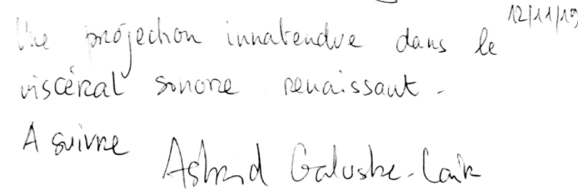 12/11/19
Une projection innatendue dans le
viscéral sonore renaissant.
A suivre
Astrid